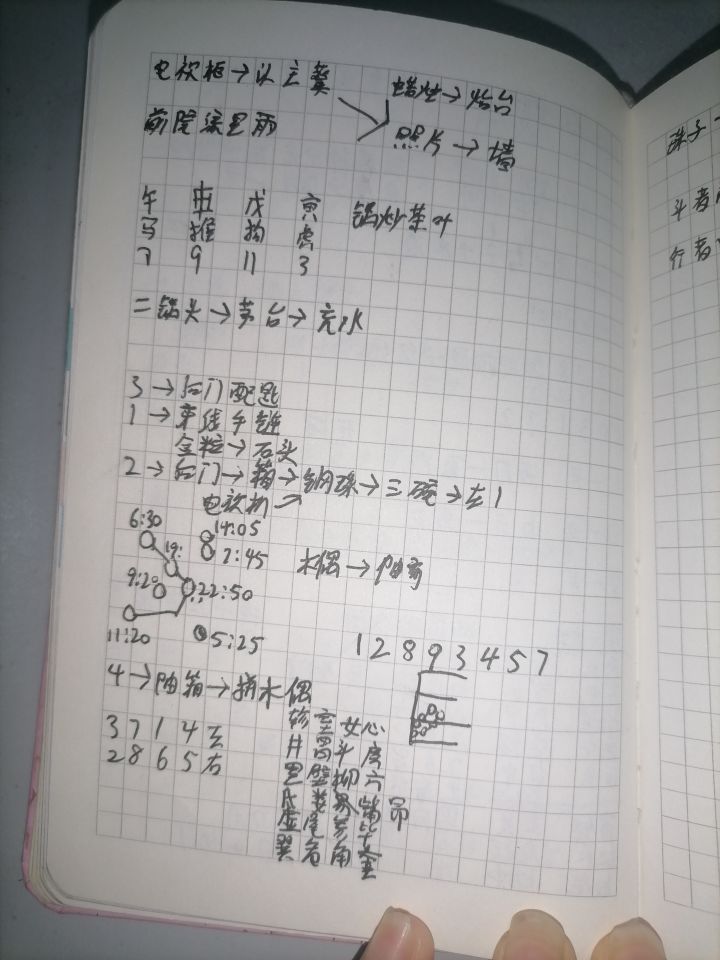 电视柜→认主簿
蜡烛→灶台
前院深里雨
照片→墙
午 申 戌 寅
马 猴 狗 虎
7 9 11 3
锅炒茶叶
二锅头→茅台→充水
3→后门配匙
1→手链
金粒→石头
2→后门→箱→钢珠→三碗→左1
电视机→
6:30
14:05
19:
7:45
9:20
22:50
11:20
5:25
木偶→
1 2 8 9 3 4 5 7
4→箱→拼木偶
3 7 1 4 左
2 8 6 5 右
轸室女心
井胃斗房
星壁柳亢
昴
虚尾
翼危角奎
珠子
斗者
行者